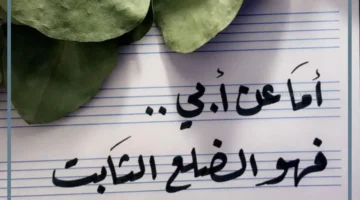 أمَا عن أبي ..
فهو الضلع الثَابت